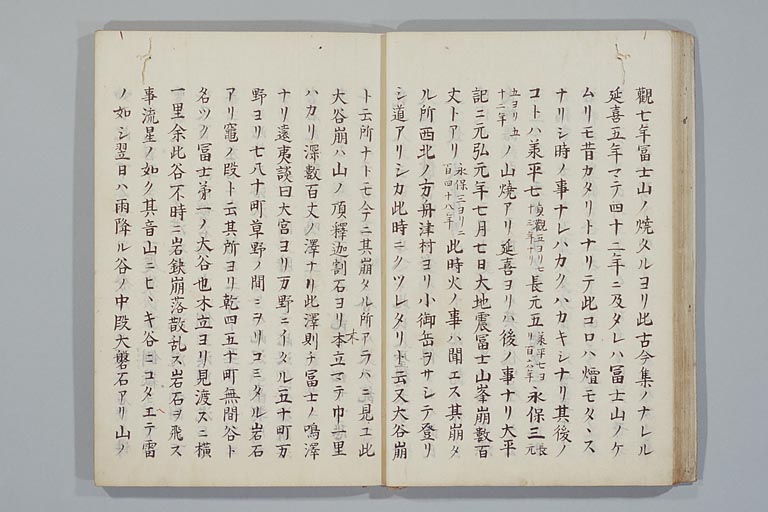 觀七年冨士山ノ燒タルヨリ此古今集ノナレル
延喜五年マテ四十二年ニ及タレハ冨士山ノケ
ムリモ昔カタリトナリテ此コロハ燈モタヽス
ナリシ時ノ事ナレハカクハカキシナリ其後ノ
コトハ兼平七貞觀五ヨリ七十三年ナリ長元五兼平七ヨリ百六年永保三長元
五ヨリ五十二年ノ山燒アリ延喜ヨリハ後ノ事ナリ大平
記ニ元弘元年七月七日大地震冨士山峯崩數百
丈トアリ永保三ヨリ二百四十八年此時火ノ事ハ聞エス其崩タ
ル所西北ノ方舟津村ヨリ小御岳ヲサシテ登リ
シ道アリシカ此時ニクツレタリト云又大谷崩
ト云所ナトモ今ニ其崩タル所アラハニ見エ此
大谷崩ハ山ノ頂釋迦割石ヨリ本立マテ巾一里
木
ハカリ深數百丈ノ澤ナリ此澤則チ冨士ノ鳴澤
ナリ遠夷談曰大宮ヨリ万野ニイタル五十町万
野ヨリ七八十町草野ノ間ミヲリコミタル岩石
アリ竈ノ段ト云其所ヨリ乾四五十町無間谷ト
名ツク冨士第一ノ大谷也木立ヨリ見渡スニ横
一里余此谷不時ニ岩鈌崩落散乱ス岩石ヲ飛ス
事流星ノ如ク其音山ニヒヽキ谷ニコタエテ雷
ノ如シ翌日ハ雨降ル谷ノ中段大磐石アリ山ノ